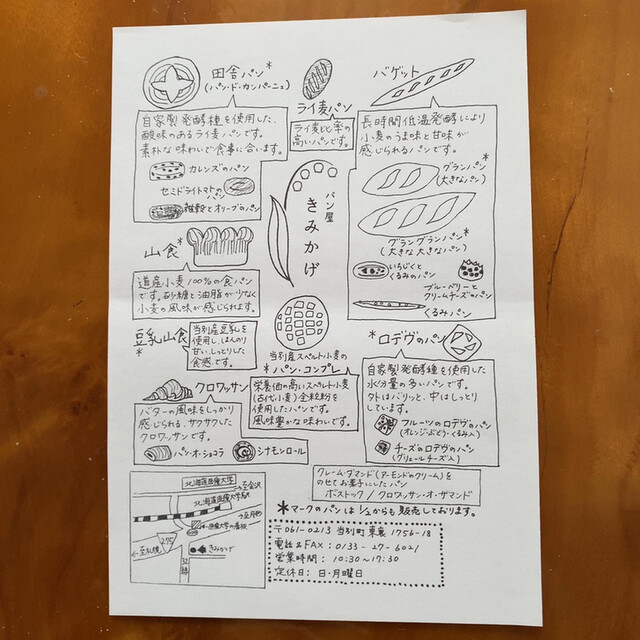 田舎パン*
(パン・ド・カンパーニュ)
自家製発酵種を使用した、
酸味のあるライ麦パンです。
素朴な味わいで食事に合います。
カレンズのパン
セミドライトマトのパン
雑穀とオリーブのパン
ライ麦パン
ライ麦比率の
高いパンです。
バゲット
長時間低温発酵により
小麦のうま味と甘味が
感じられるパンです。
グランパン*
(大きなパン)
グラングランパン*
(大きな大きなパン)
いちじくと
くるみのパン
ブルーベリーと
クリームチーズのパン
くるみパン
パン屋
きみかげ
山食*
道産小麦100%の食パン
です。砂糖と油脂が少なく
小麦の風味が感じられます。
豆乳山食
*
当別産豆乳を
使用し、ほんのり
甘い、しっとりした
食感です。
当別産スペルト小麦の
*パン・コンプレ
栄養価の高いスペルト小麦
(古代小麦)全粒粉を
使用したパンです。
風味豊かな味わいです。
*ロデヴのパン
自家製発酵種を使用した
水分量の多いパンです。
外はパリッと、中はしっとり
しています。
フルーツのロデヴのパン
(オレンジ・ぶどう・くるみ入)
チーズのロデヴのパン
(グリエールチーズ入)
クロワッサン
バターの風味をしっかり
感じられる、サクサクした
クロワッサンです。
パン・オ・ショコラ
シナモンロール
クレーム・ダマンド(アーモンドのクリーム)を
のせてお菓子にしたパン
ボストック / クロワッサン・オ・ザマンド
*マークのパンは1/2からも販売しております。
北海道医療大学
→至金沢
北海道医療大学駅
→至月形
←至札幌
275
きみかげ
〒061-0213 当別町東裏1756-18
電話&FAX：0133-27-6021
営業時間：10:30~17:30
定休日：日・月曜日